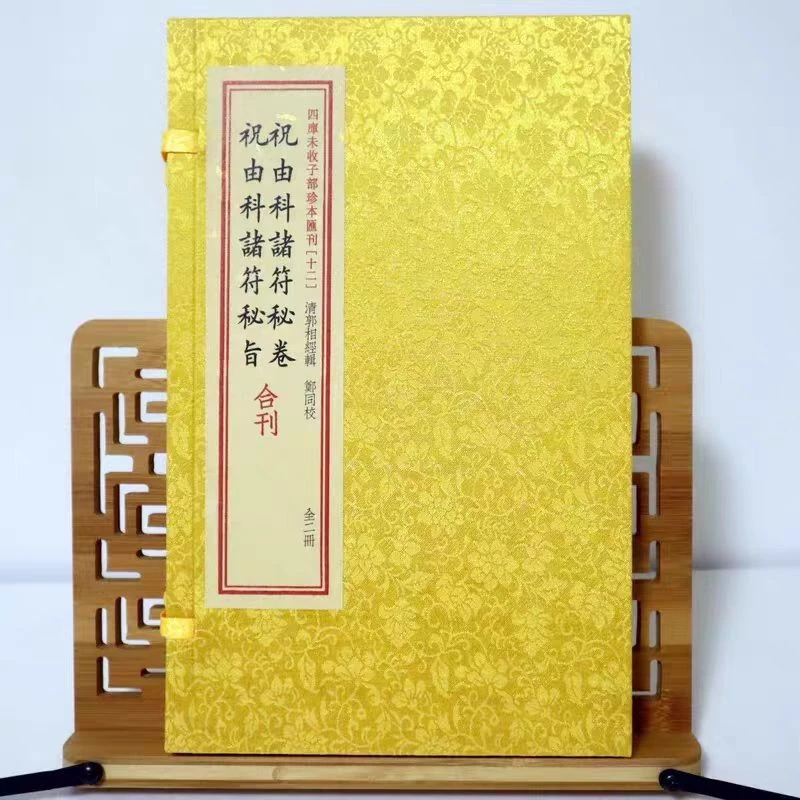 四庫未收子部珍本匯刊［十二］ 清郭相經輯 鄭同校
祝由科諸符秘卷
祝由科諸符秘旨
合刊
全二冊